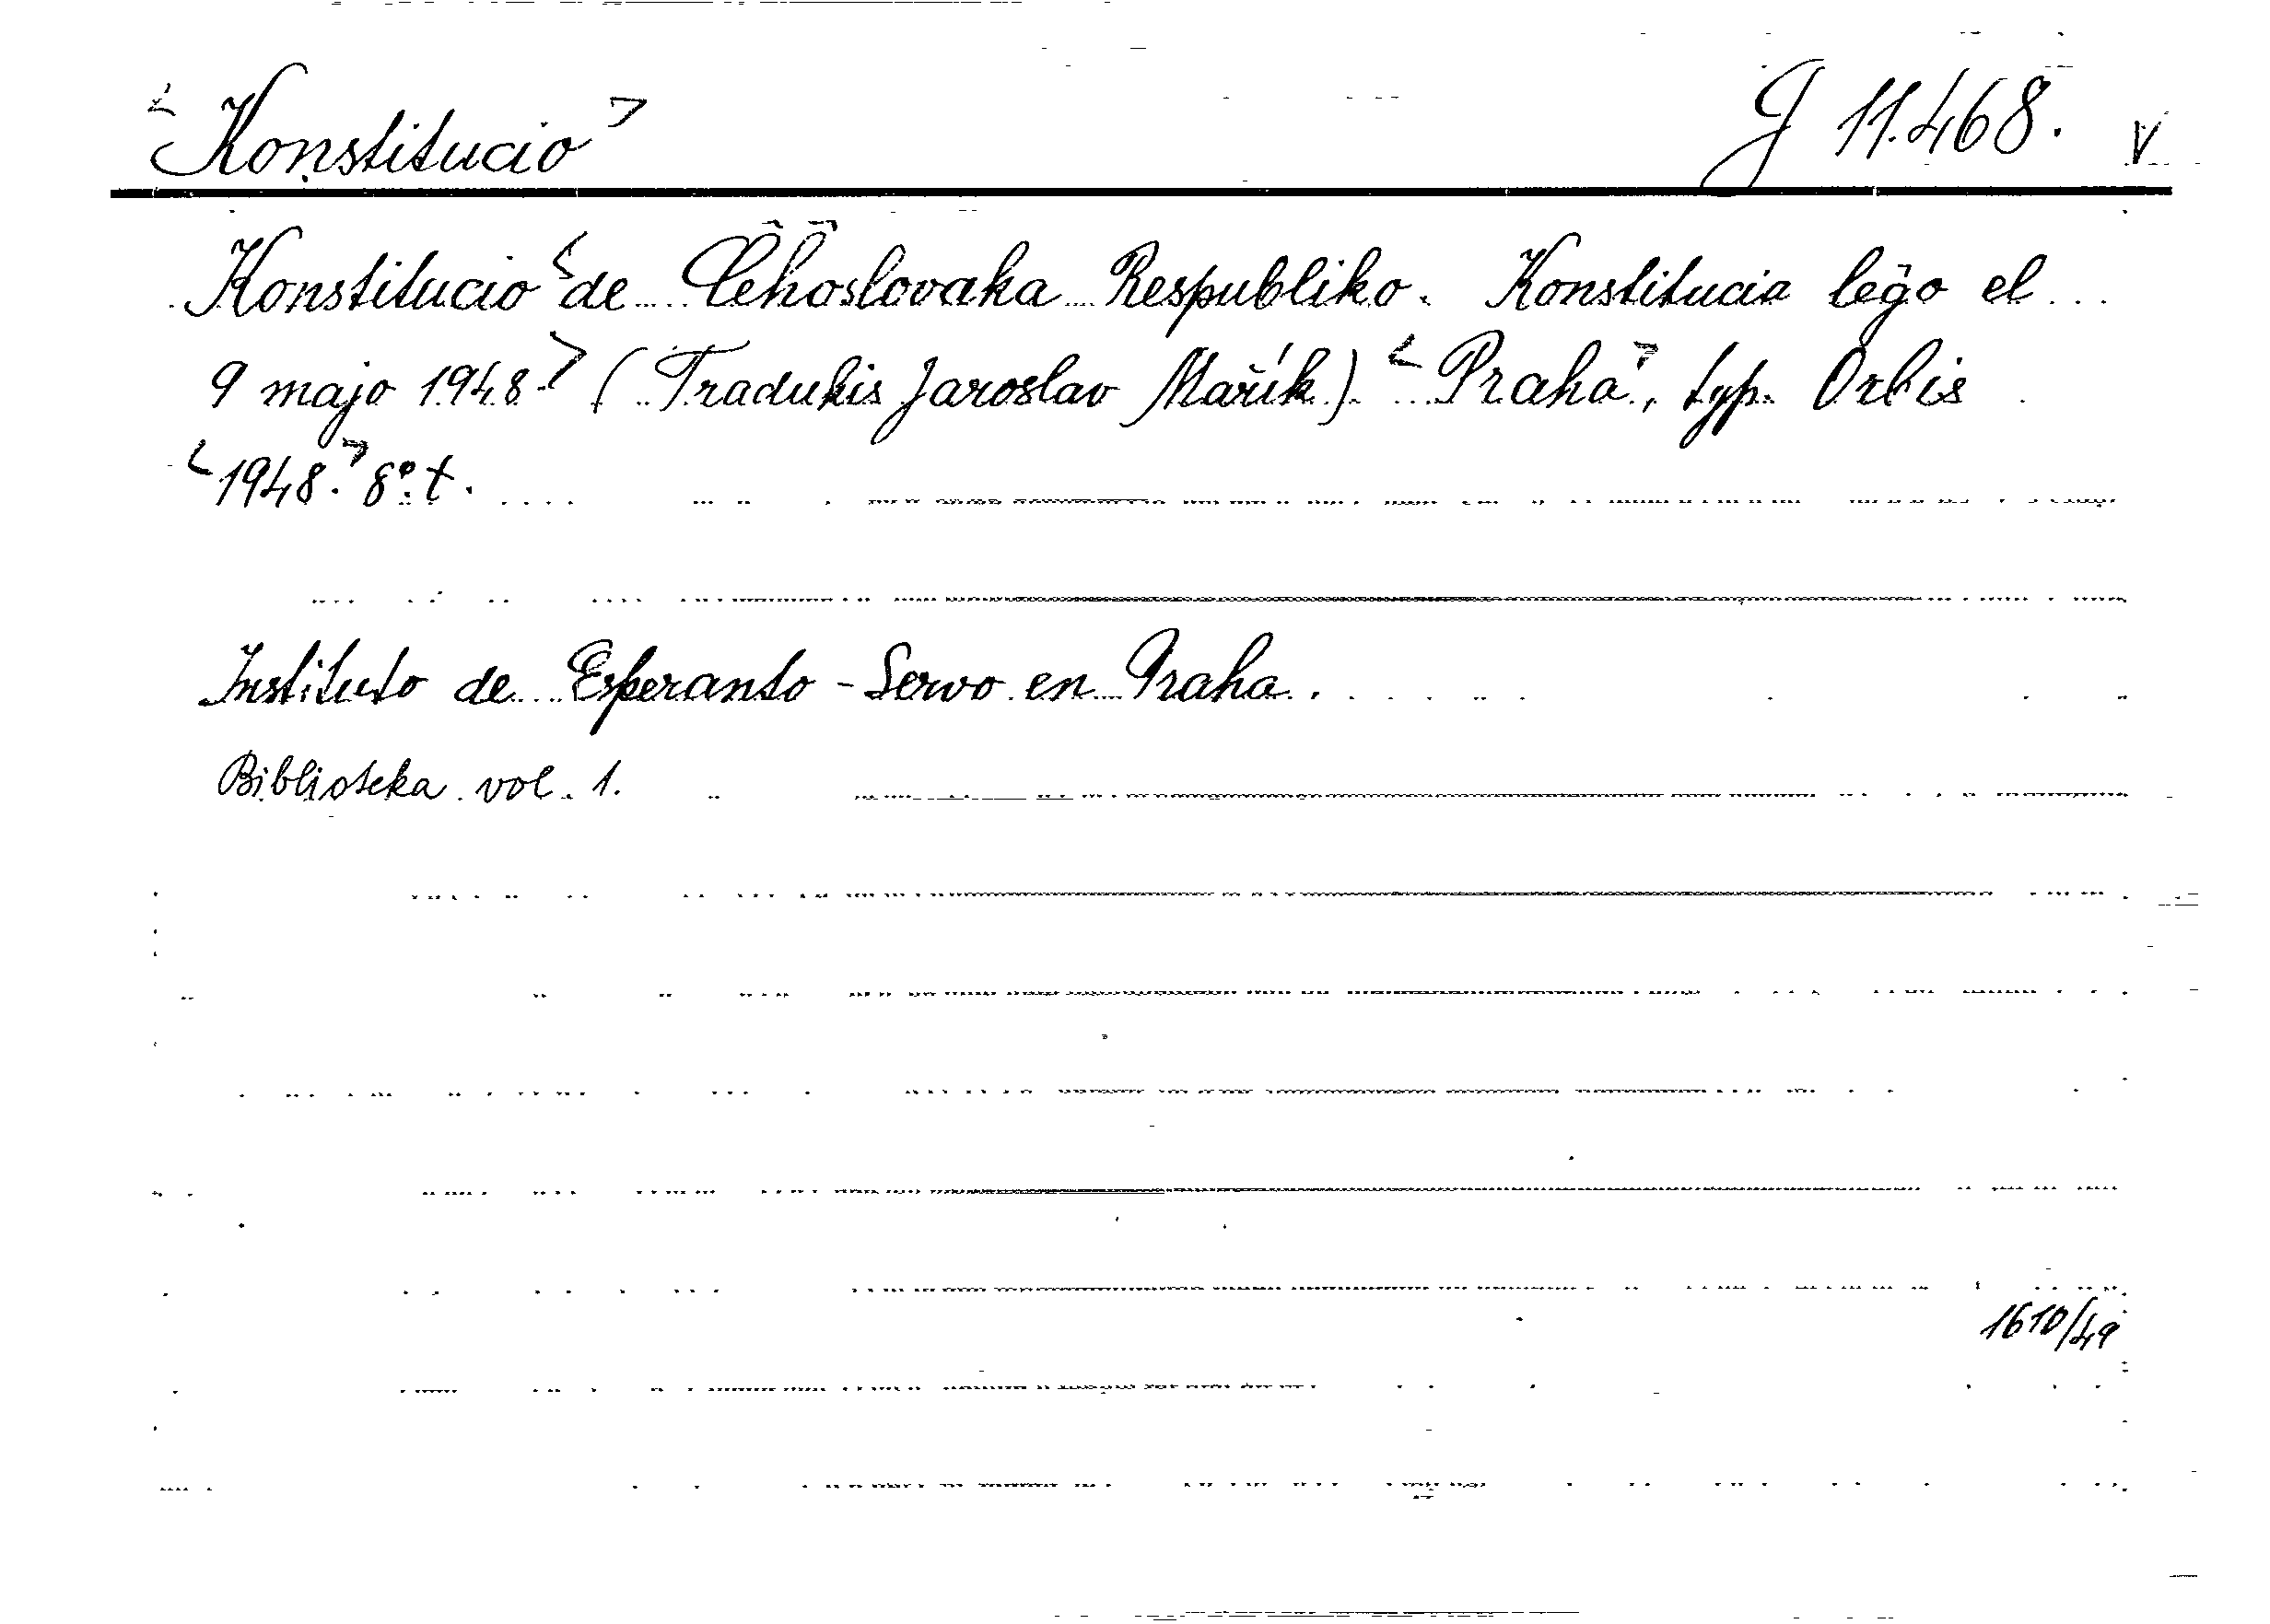 <Konstitucio> J 11.468. V
Konstitucio <de Ĉeĥoslovaka Respubliko. Konstitucia leĝo el
9 majo 1948.> (Tradukis Jaroslav Mařík). <Praha>, typ. Orbis
<1948.> 8°. t.
Instituto de Esperanto-Servo en Praha.
Biblioteka vol. 1.
1610/49